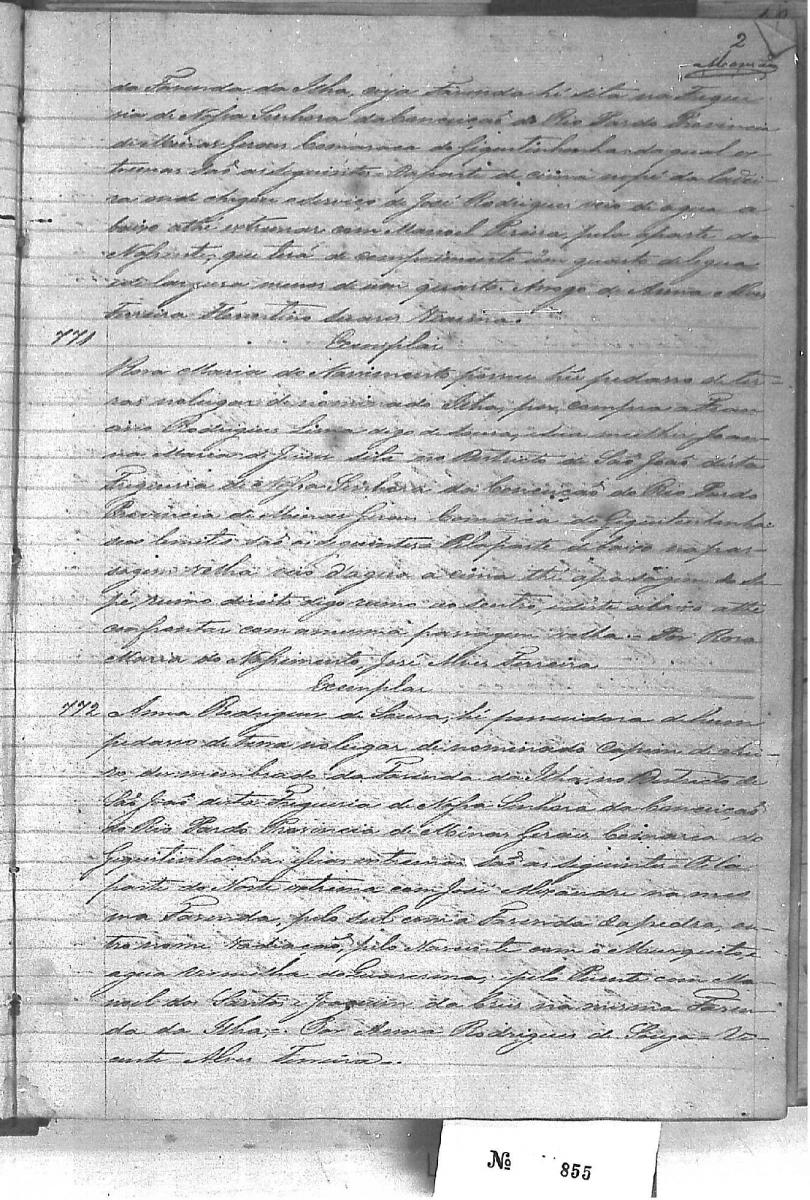 2
da Fazenda da Ilha, cuja Fazenda hé sita na Fregue-
sia de Nossa Senhora da Conceiçaõ do Rio Pardo Provincia
de Minas Geraes Comarca de Gequitinhonha da qual ex-
tremas Saõ as seguintes da parte de cima no pé da ladei-
ra onde chegou o serviço de José Rodrigues veio de agua a
baixo athe extremar com Manoel Pereira, pela parte do
Nascente, que terá de comprimento um quarto de legua
e de largura menos de um quarto. Arogo de Anna Alves
Ferreira Florentino
771 Exemplar
Rosa Maria do Nascimento, possue hú pedasso de ter-
ras no lugar denominado Ilha, por compra a Fran-
cisco Rodrigues Lima digo de Sousa, e Sua mulher Joan-
na Maria de Jesus Sita no Destricto de Saõ Joaõ desta
Freguesia de Nossa Senhora da Conceiçaõ do Rio Pardo
Provincia de Minas Geraes Comarca de Gequitinhonha
seus limites saõ os seguintes Pela parte de baixo na pas-
sagem velha veio d'agua a cima thé a pasagem do
pé, rumo direito digo rumo ao Sentro, e deste a baixo athe
confrontar com a mesma passagem velha. = Por Rosa
Maria do Nascimento, José Alves Ferreira
Exemplar
772 Anna Rodrigues de Souza, hé possuidora de hum
pedasso de terra no lugar denominado Capim de
desmembrado da Fazenda da Ilha, no Destricto de
Saõ Joaõ desta Freguesia de Nossa Senhora da Conceiçaõ
do Rio Pardo Provincia de Minas Geraes Comarca de
Gequitinhonha cujas extremas saõ as seguintes Pela
parte do Norte extrema com José Alexandre na mes
ma Fazenda, pelo sul com a Fazenda da pedra, ou-
tro nome Vadiaçaõ, pelo Nascente com o Musquito, e
agua vermelha do, pelo Poente com Ma-
noel dos Santos e Joaquim da Cruz na mesma Fazen-
da da Ilha. = Por Anna Rodrigues de Souza = Vi-
cente Alves Ferreira.
Nº 855